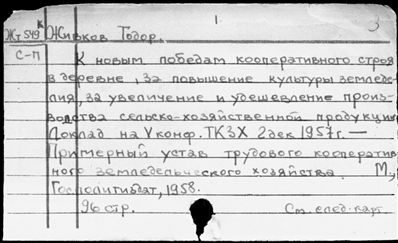 1.
3
Жт549к Живков Тодор.
С-П
К новым победам кооперативного строя
в деревне, за повышение культуры земледе-
лия, за увеличение и удешевление произ-
водства сельско-хозяйственной продукции
Доклад на V конф. ТКЗХ 2 дек 1957г. —
Примерный устав трудового кооператив-
ного земледельческого хозяйства. М.,
Госполитиздат, 1958.
96 стр. См. след. карт.